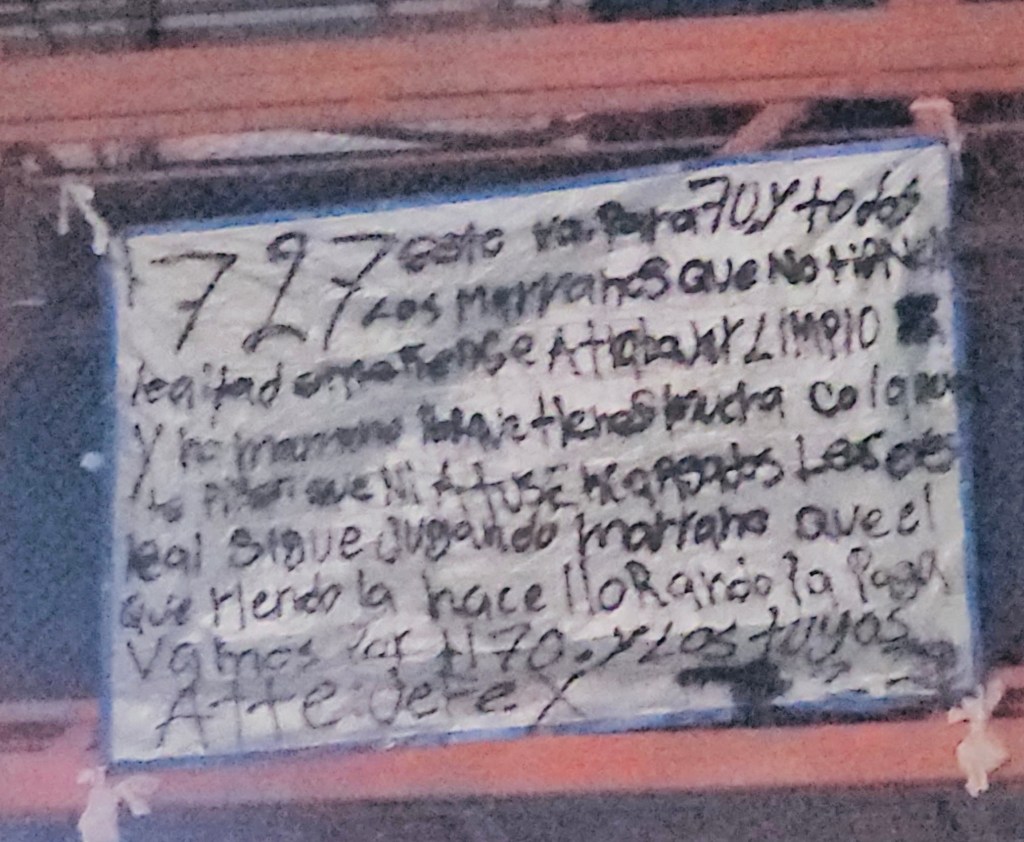 727 esto va para 70 y todos
Los marranos que no tienen
lealtad LIMPIO
y no tienes mucha cola que
que ni A tus Les eres
leal sigue jugando marrano que el
que riendo la hace lloRando la Paga
Vamos Por ti 70. y Los tuyos
Atte: Jefe X